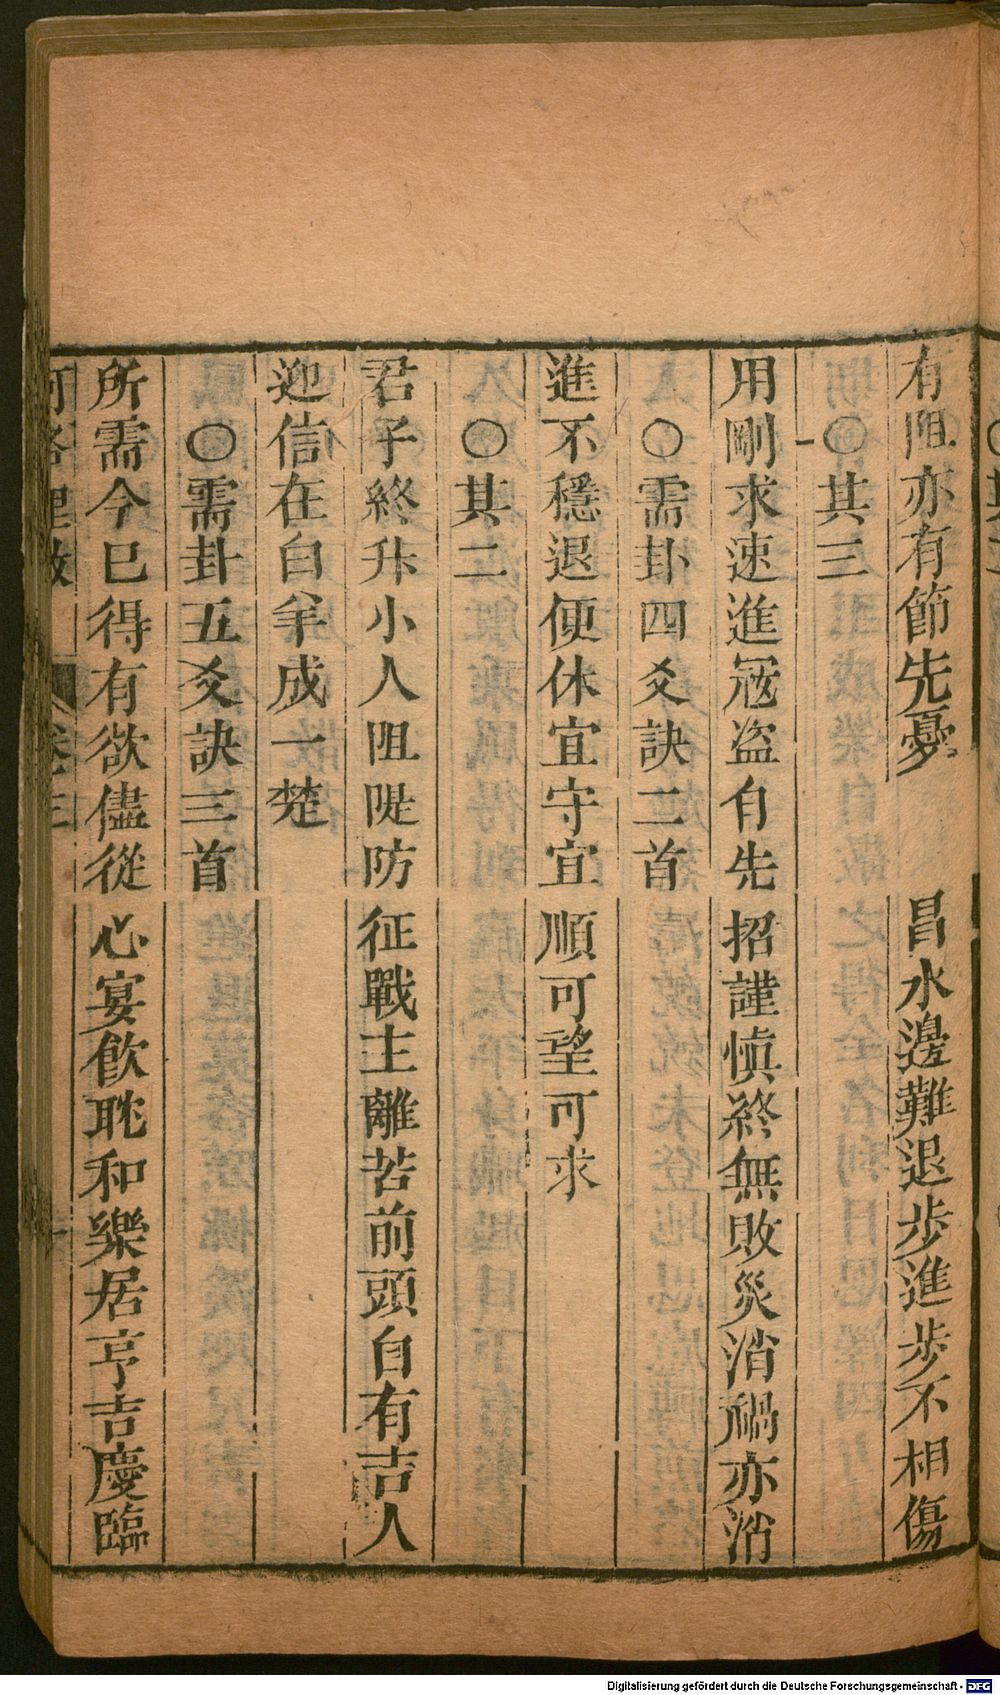 有阻亦有節先憂　　昌水邊難退步進步不相傷
○其三
用剛求速進冦盗自先招謹慎終無敗災消禍亦消
○需卦四爻訣二首
進不穩退便休宜守宜順可望可求
○其二
君子終升小人阻隄防征戰主離苦前頭自有吉人
迎信在白羊成一楚
○需卦五爻訣三首
所需今巳得有欲儘從心宴飲耽和樂居亨吉慶臨
河洛理數　卷三
Digitalisierung gefördert durch die Deutsche Forschungsgemeinschaft - DFG